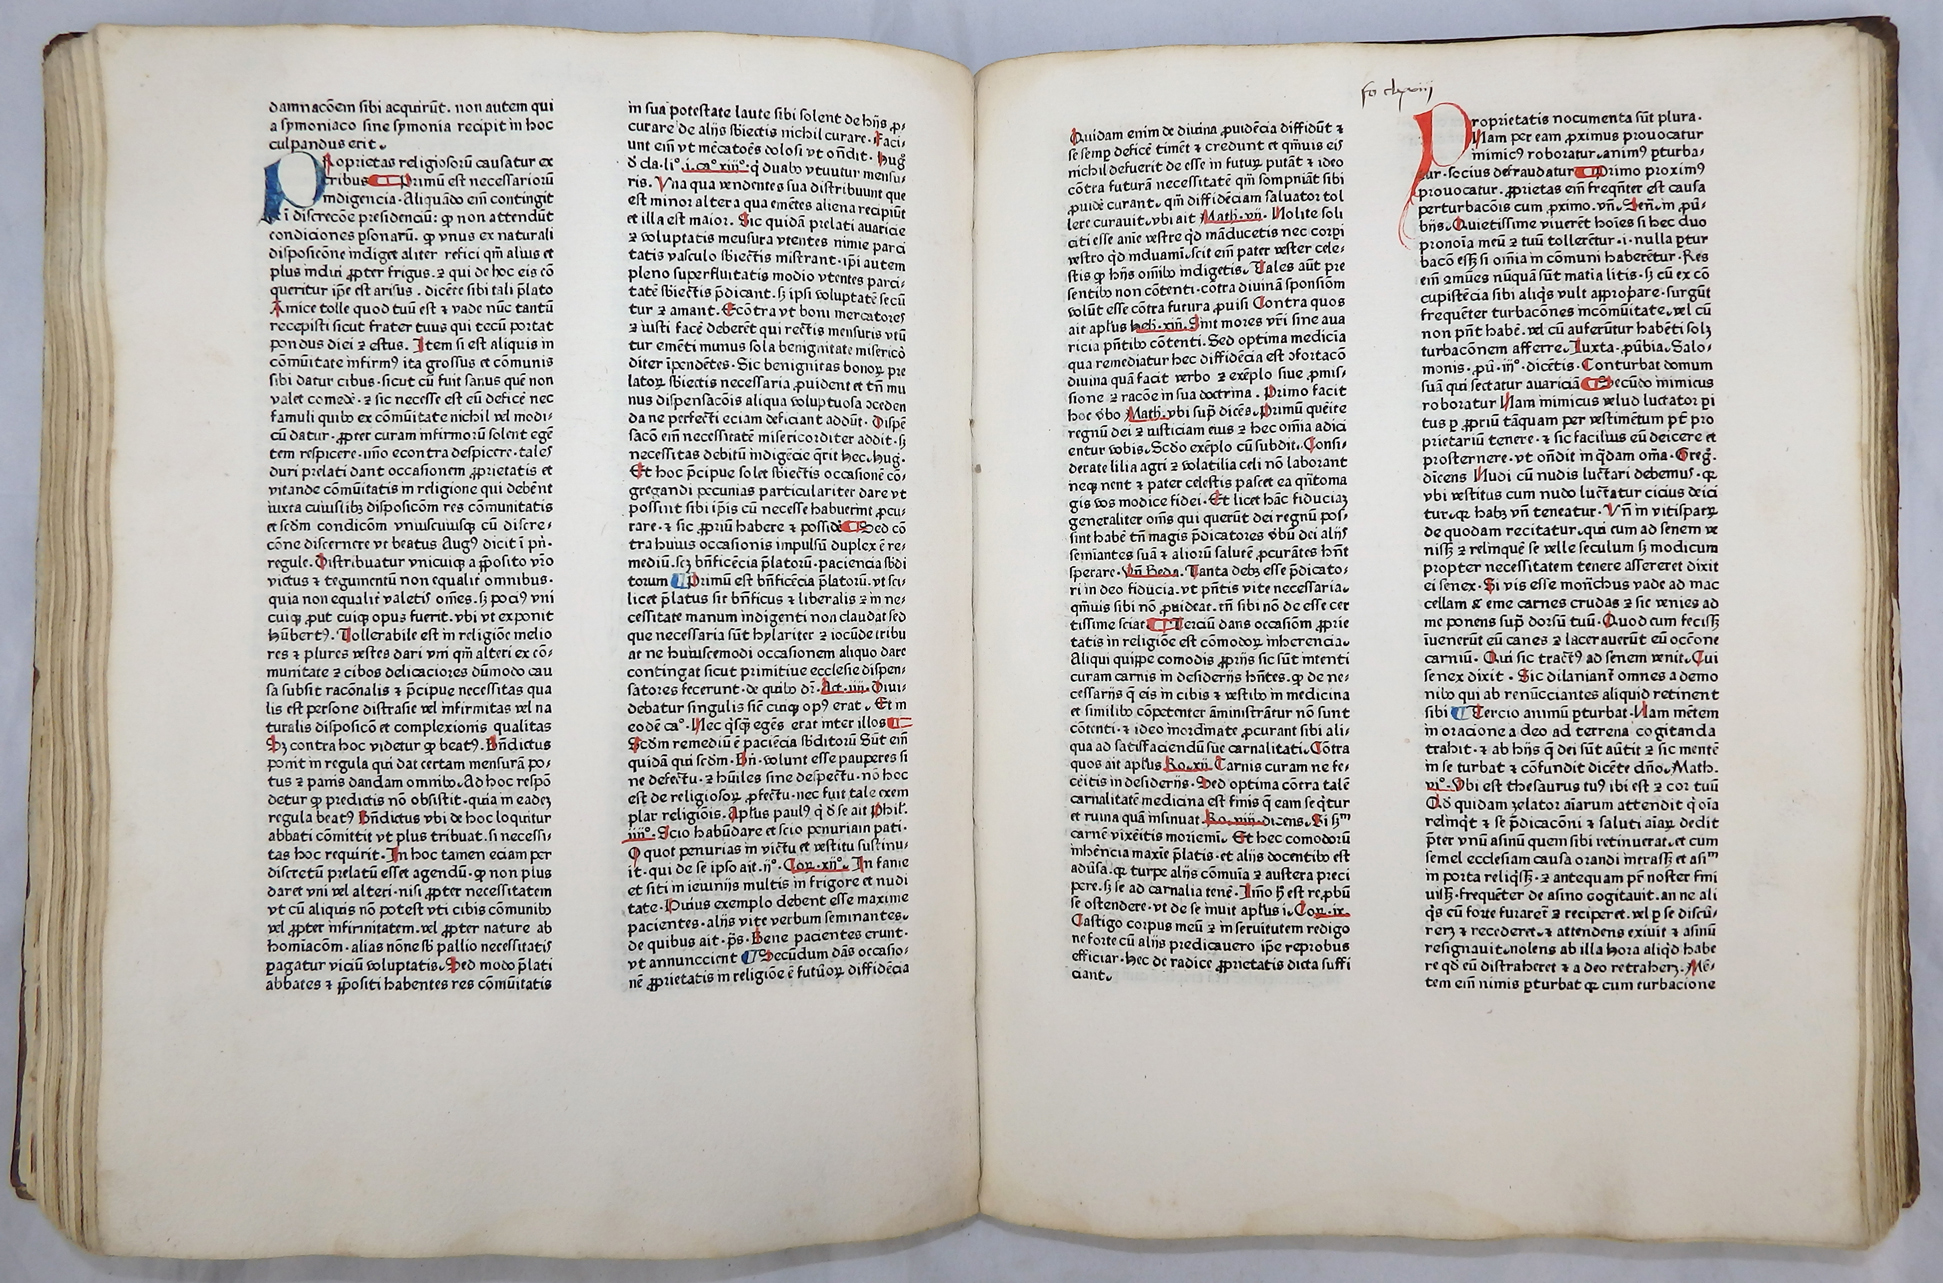 damnacōem sibi acquirūt. non autem qui
a symoniaco sine symonia recipit in hoc
culpandus erit.
PRoprietas religiosorū causatur ex
tribus Primū est necessariorū
indigencia. Aliquādo eīn contingit
ī discrecōe presidenciū: qꝫ non attendūt
condiciones ꝑsonarū. qꝫ vnus ex naturali
disposicōne indiget aliter refici qm̄ alius et
plus indui ꝓpter frigus. ⁊ qui de hoc eis cō
queritur ip̄e est arisus. dicēte sibi tali p̄lato
Amice tolle quod tuū est ⁊ vade nūc tantū
recepisti sicut frater tuus qui tecū portat
pondus diei ⁊ estus. Item si est aliquis in
cōmūitate infirmꝰ ita grossus et cōmunis
sibi datur cibus. sicut cū fuit sanus quē non
valet comedē. ⁊ sic necesse est eū deficē nec
famuli quibꝰ ex cōmūitate nichil vel modi-
cū datur. ꝓpter curam infirmorū solent egē
tem respicere. īmo econtra despicere. tales
duri prelati dant occasionem ꝓprietatis et
vitande cōmūitatis in religione qui debēnt
iuxta cuiuslibꝫ disposicōm res cōmunitatis
et scd̄m condicōm vniuscuiusqꝫ cū discre-
cōne discernere vt beatus Augꝰ dicit ī pn̄.
regule. Distribuatur vnicuiqꝫ a p̄posito vr̄o
victus ⁊ tegumentū non equalit̄ omnibus.
quia non equalit̄ valetis om̄es. sꝫ pociꝰ vni
cuiqꝫ ꝓut cuiqꝫ opus fuerit. vbi vt exponit
Hūbertꝰ. Tollerabile est in religiōe melio
res ⁊ plures vestes dari vni qm̄ alteri ex cō-
munitate ⁊ cibos delicaciores dūmodo cau
sa subsit racōnalis ⁊ p̄cipue necessitas qua
lis est persone distrasie vel infirmitas vel na
turalis disposicō et complexionis qualitas
Sꝫ contra hoc videtur qꝫ beatꝰ. Bn̄dictus
ponit in regula qui dat certam mensurā po-
tus ⁊ panis dandam omnibꝰ. Ad hoc respō
detur qꝫ predictis nō obsistit. quia in eadeꝫ
regula beatꝰ Bn̄dictus vbi de hoc loquitur
abbati cōmittit vt plus tribuat. si necessi-
tas hoc requirit. In hoc tamen eciam per
discretū prelatū esset agendū. qꝫ non plus
daret vni vel alteri. nisi ꝓpter necessitatem
vt cū aliquis nō potest vti cibis cōmunibꝰ
vel ꝓpter infirmitatem. vel ꝓpter nature ab
homiacōm. alias nōne sb̄ pallio necessitatis
pagatur viciū voluptatis. Sed modo p̄lati
abbates ⁊ p̄positi habentes res cōmūitatis
in sua potestate laute sibi solent de hijs ꝓ-
curare de alijs sb̄iectis nichil curare. Faci-
unt eīn vt mēcatoēs dolosi vt on̄dit. Hugꝰ
ð cla. liº. i. caº xiiiº. qꝫ duabꝰ vtuutur mensu
ris. Vna qua vendentes sua distribuunt que
est minor altera qua emētes aliena recipiūt
et illa est maior. Sic quidā prelati auaricie
⁊ voluptatis meusura vtentes nimie parci
tatis vasculo sb̄iectis mistrant. ip̄i autem
pleno superfluitatis modio vtentes parci-
tatē sb̄iectis p̄dicant. sꝫ ipsi voluptatē secū
tur ⁊ amant. Ecōtra vt boni mercatores
⁊ iusti facē deberēt qui rectis mensuris vtū
tur emēti munus sola benignitate misericō
diter īpendētes. Sic benignitas bonoꝝ pre
latoꝝ sb̄iectis necessaria ꝓuident et tn̄ mu
nus dispensacōis aliqua voluptuosa ↄceden
da ne perfecti eciam deficiant addūt. Dispē
sacō eīn necessitatē misericorditer addit. sꝫ
necessitas debitū indigēcie q̄rit hec. Hug.
Et hoc p̄cipue solet sb̄iectis occasionē cō-
gregandi pecunias particulariter dare vt
possint sibi ip̄is cū necesse habuerint ꝓcu-
rare. ⁊ sic ꝓpriū habere ⁊ possidē Sed cō
tra huius occasionis impulsū duplex ē re-
mediū. scꝫ bn̄ficēcia p̄latorū. paciencia sb̄di
torum Primū est bn̄ficēcia p̄latorū. vt sci-
licet p̄latus sit bn̄ficus ⁊ liberalis ⁊ in ne-
cessitate manum indigenti non claudat sed
que necessaria sūt hylariter ⁊ iocūde tribu
at ne huiuscemodi occasionem aliquo dare
contingat sicut primitiue ecclesie dispen-
satores fecerunt. de quibꝰ dr̄. Act. iiii. Diui-
debatur singulis sic̄ cuiqꝫ opꝰ erat. Et in
eodē caº. Nec q̄sq̄ egēs erat inter illos
Scd̄m remediū ē paciēcia sb̄ditorū Sūt eīn
quidā qui scd̄m. Bn̄. volunt esse pauperes si
ne defectu. ⁊ hūiles sine despectu. nō hoc
est de religiosoꝝ ꝓfectu. nec fuit tale exem
plar religiōis. Apl̄us paulꝰ q̄ ð se ait Phil.
iiiiº. Scio habūdare et scio penuriam pati.
O quot penurias in victu et vestitu sustinu-
it. qui de se ipso ait. ijº. Cor. xijº. In fame
et siti in ieiunijs multis in frigore et nudi
tate. Huius exemplo debent esse maxime
pacientes. alijs vite verbum seminantes.
de quibus ait. ps̄. Bene pacientes erunt.
vt annunccient Secūdum dās occasio-
nē ꝓprietatis in religiōe ē futūoꝝ diffidēcia
fo clxviij
Quidam enim de diuina ꝓuidēcia diffidūt ⁊
se semꝑ deficē timēt ⁊ credunt et qm̄uis eis
nichil defuerit de esse in futuꝝ putāt ⁊ ideo
cōtra futurā necessitatē qm̄ sompniāt sibi
ꝓuidē curant. qm̄ diffidēciam saluator tol
lere curauit. vbi ait Math. vi. Nolite soli
citi esse anīe vestre qd̄ māducetis nec corpi
vestro qd̄ induami. scit eīn pater vester cele-
stis qꝫ hijs om̄ibꝰ indigetis. Tales aūt pre
sentibꝰ non cōtenti. cōtra diuinā sponsiōm
volūt esse cōtra futura ꝓuisi Contra quos
ait apl̄us heb. xiii. Sint mores vr̄i sine aua
ricia pn̄tibꝰ cōtenti. Sed optima medicia
qua remediatur hec diffidēcia est ↄfortacō
diuina quā facit verbo ⁊ exēplo siue ꝓmis-
sione ⁊ racōe in sua doctrina. Primo facit
hoc v̄bo Math. vbi sup̄ dicēs. Primū quēite
regnū dei ⁊ iusticiam eius ⁊ hec om̄ia adici
entur vobis. Scd̄o exēplo cū subdit. Consi-
derate lilia agri ⁊ volatilia celi nō laborant
neqꝫ nent ⁊ pater celestis pascet ea qn̄toma
gis vos modice fidei. Et licet hāc fiduciaꝫ
generaliter om̄s qui querūt dei regnū pos-
sint habē tn̄ magis p̄dicatores v̄bū dei alijs
semiantes suā ⁊ aliorū salutē ꝓcurātes hn̄t
sperare. Vn̄ Beda. Tanta debꝫ esse p̄dicato-
ri in deo fiducia. vt pn̄tis vite necessaria.
qm̄uis sibi nō ꝓuideat. tn̄ sibi nō de esse cer
tissime sciat Terciū dans occasiōm ꝓprie
tatis in religiōe est cōmodoꝝ inherencia.
Aliqui quippe comodis ꝓprijs sic sūt intenti
curam carnis in desiderijs hn̄tes. qꝫ de ne-
cessarijs q̄ eis in cibis ⁊ vestibꝰ in medicina
et similibꝰ cōpetenter āministrātur nō sunt
cōtenti. ⁊ ideo inordinate ꝓcurant sibi ali-
qua ad satisfaciendū sue carnalitati. Cōtra
quos ait apl̄us Ro. xii. Carnis curam ne fe-
ceitis in desiderijs. Sed optima cōtra talē
carnalitatē medicina est finis q̄ eam seq̄tur
et ruina quā insinuat Ro. viii. dicens. Si sm̄
carnē vixēitis moriemi. Et hec comodorū
inhēncia maxīe p̄latis. et alijs docentibꝰ est
adūsa. qꝫ turpe alijs cōmuīa ⁊ austera preci
pere. sꝫ se ad carnalia tenē. Īmo hꝫ est reꝓbū
se ostendere. vt de se īnuit apl̄us i. Cor. ix.
Castigo corpus meū ⁊ in seruitutem redigo
ne forte cū alijs predicauero ip̄e reprobus
efficiar. Hec de radice ꝓprietatis dicta suffi
ciant.
PRoprietatis nocumenta sūt plura.
Nam per eam ꝓximus prouocatur
inimicꝰ roboratur. animꝰ ꝑturba-
tur. socius defraudatur Primo proximꝰ
prouocatur. ꝓprietas eīn freq̄nter est causa
perturbacōis cum ꝓximo. vn̄. Sen̄. in pū-
bijs. Quietissime viuerēt hoīes si hec duo
pronoīa meū ⁊ tuū tollerētur. i. nulla ꝑtur
bacō essꝫ si om̄ia in comuni haberētur. Res
eīn ⁊mūes nūquā sūt matia litis. sꝫ cū ex cō
cupistēcia sibi aliq̄s vult aꝓprare. surgūt
frequēter turbacōnes incōmuītate. vel cū
non pn̄t habē. vel cū auferūtur habēti solꝫ
turbacōnem afferre. Iuxta. pūbia. Salo-
monis. pū. iiiº. dicētis. Conturbat domum
suā qui sectatur auariciā Secūdo inimicus
roboratur Nam inimicus velud luctator pi
tus ꝑ ꝓpriū tāquam per vestimētum pt̄ pro
prietariū tenere. ⁊ sic facilius eū deicere et
prosternere. vt on̄dit in q̄dam om̄a. Greḡ.
dicens Nudi cū nudis luctari debemus. qꝫ
vbi vestitus cum nudo luctatur cicius deici
tur. qꝫ habꝫ vn̄ teneatur. Vn̄ in vitispatꝝ
de quodam recitatur. qui cum ad senem ve
nissꝫ ⁊ relinquē se velle seculum sꝫ modicum
propter necessitatem tenere assereret dixit
ei senex. Si vis esse mon̄chus vade ad mac
cellam & eme carnes crudas ⁊ sic venies ad
me ponens sup̄ dorsū tuū. Quod cum fecissꝫ
īuenerūt eū canes ⁊ lacerauerūt eū occōne
carniū. Qui sic tractꝰ ad senem venit. Cui
senex dixit. Sic dilaniant̄ omnes a demo
nibꝰ qui ab renūcciantes aliquid retinent
sibi Tercio animū ꝑturbat. Nam mētem
in oracione a deo ad terrena cogitanda
trahit. ⁊ ab hijs q̄ dei sūt aūtit ⁊ sic mentē
in se turbat ⁊ cōfundit dicēte dn̄o. Math.
viº. Vbi est thesaurus tuꝰ ibi est ⁊ cor tuū
Qd̄ quidam zelator aīarum attendit q̄ oīa
relinq̄t ⁊ se p̄dicacōni ⁊ saluti aīaꝝ dedit
p̄ter vnū asinū quem sibi retinuerat. et cum
semel ecclesiam causa orandi intrassꝫ et asim̄
in porta reliq̄ssꝫ. ⁊ antequam pr̄ noster fini
uissꝫ. frequēter de asino cogitauit. an ne ali
q̄s cū forte furaret̄ ⁊ reciperet. vel ꝑ se discū-
reꝫ ⁊ recederet. ⁊ attendens exiuit ⁊ asinū
resignauit. nolens ab illa hora aliqd̄ habe
re qd̄ eū distraheret ⁊ a deo retraheꝫ. Mē-
tem eīn nimis ꝑturbat qꝫ cum turbacione